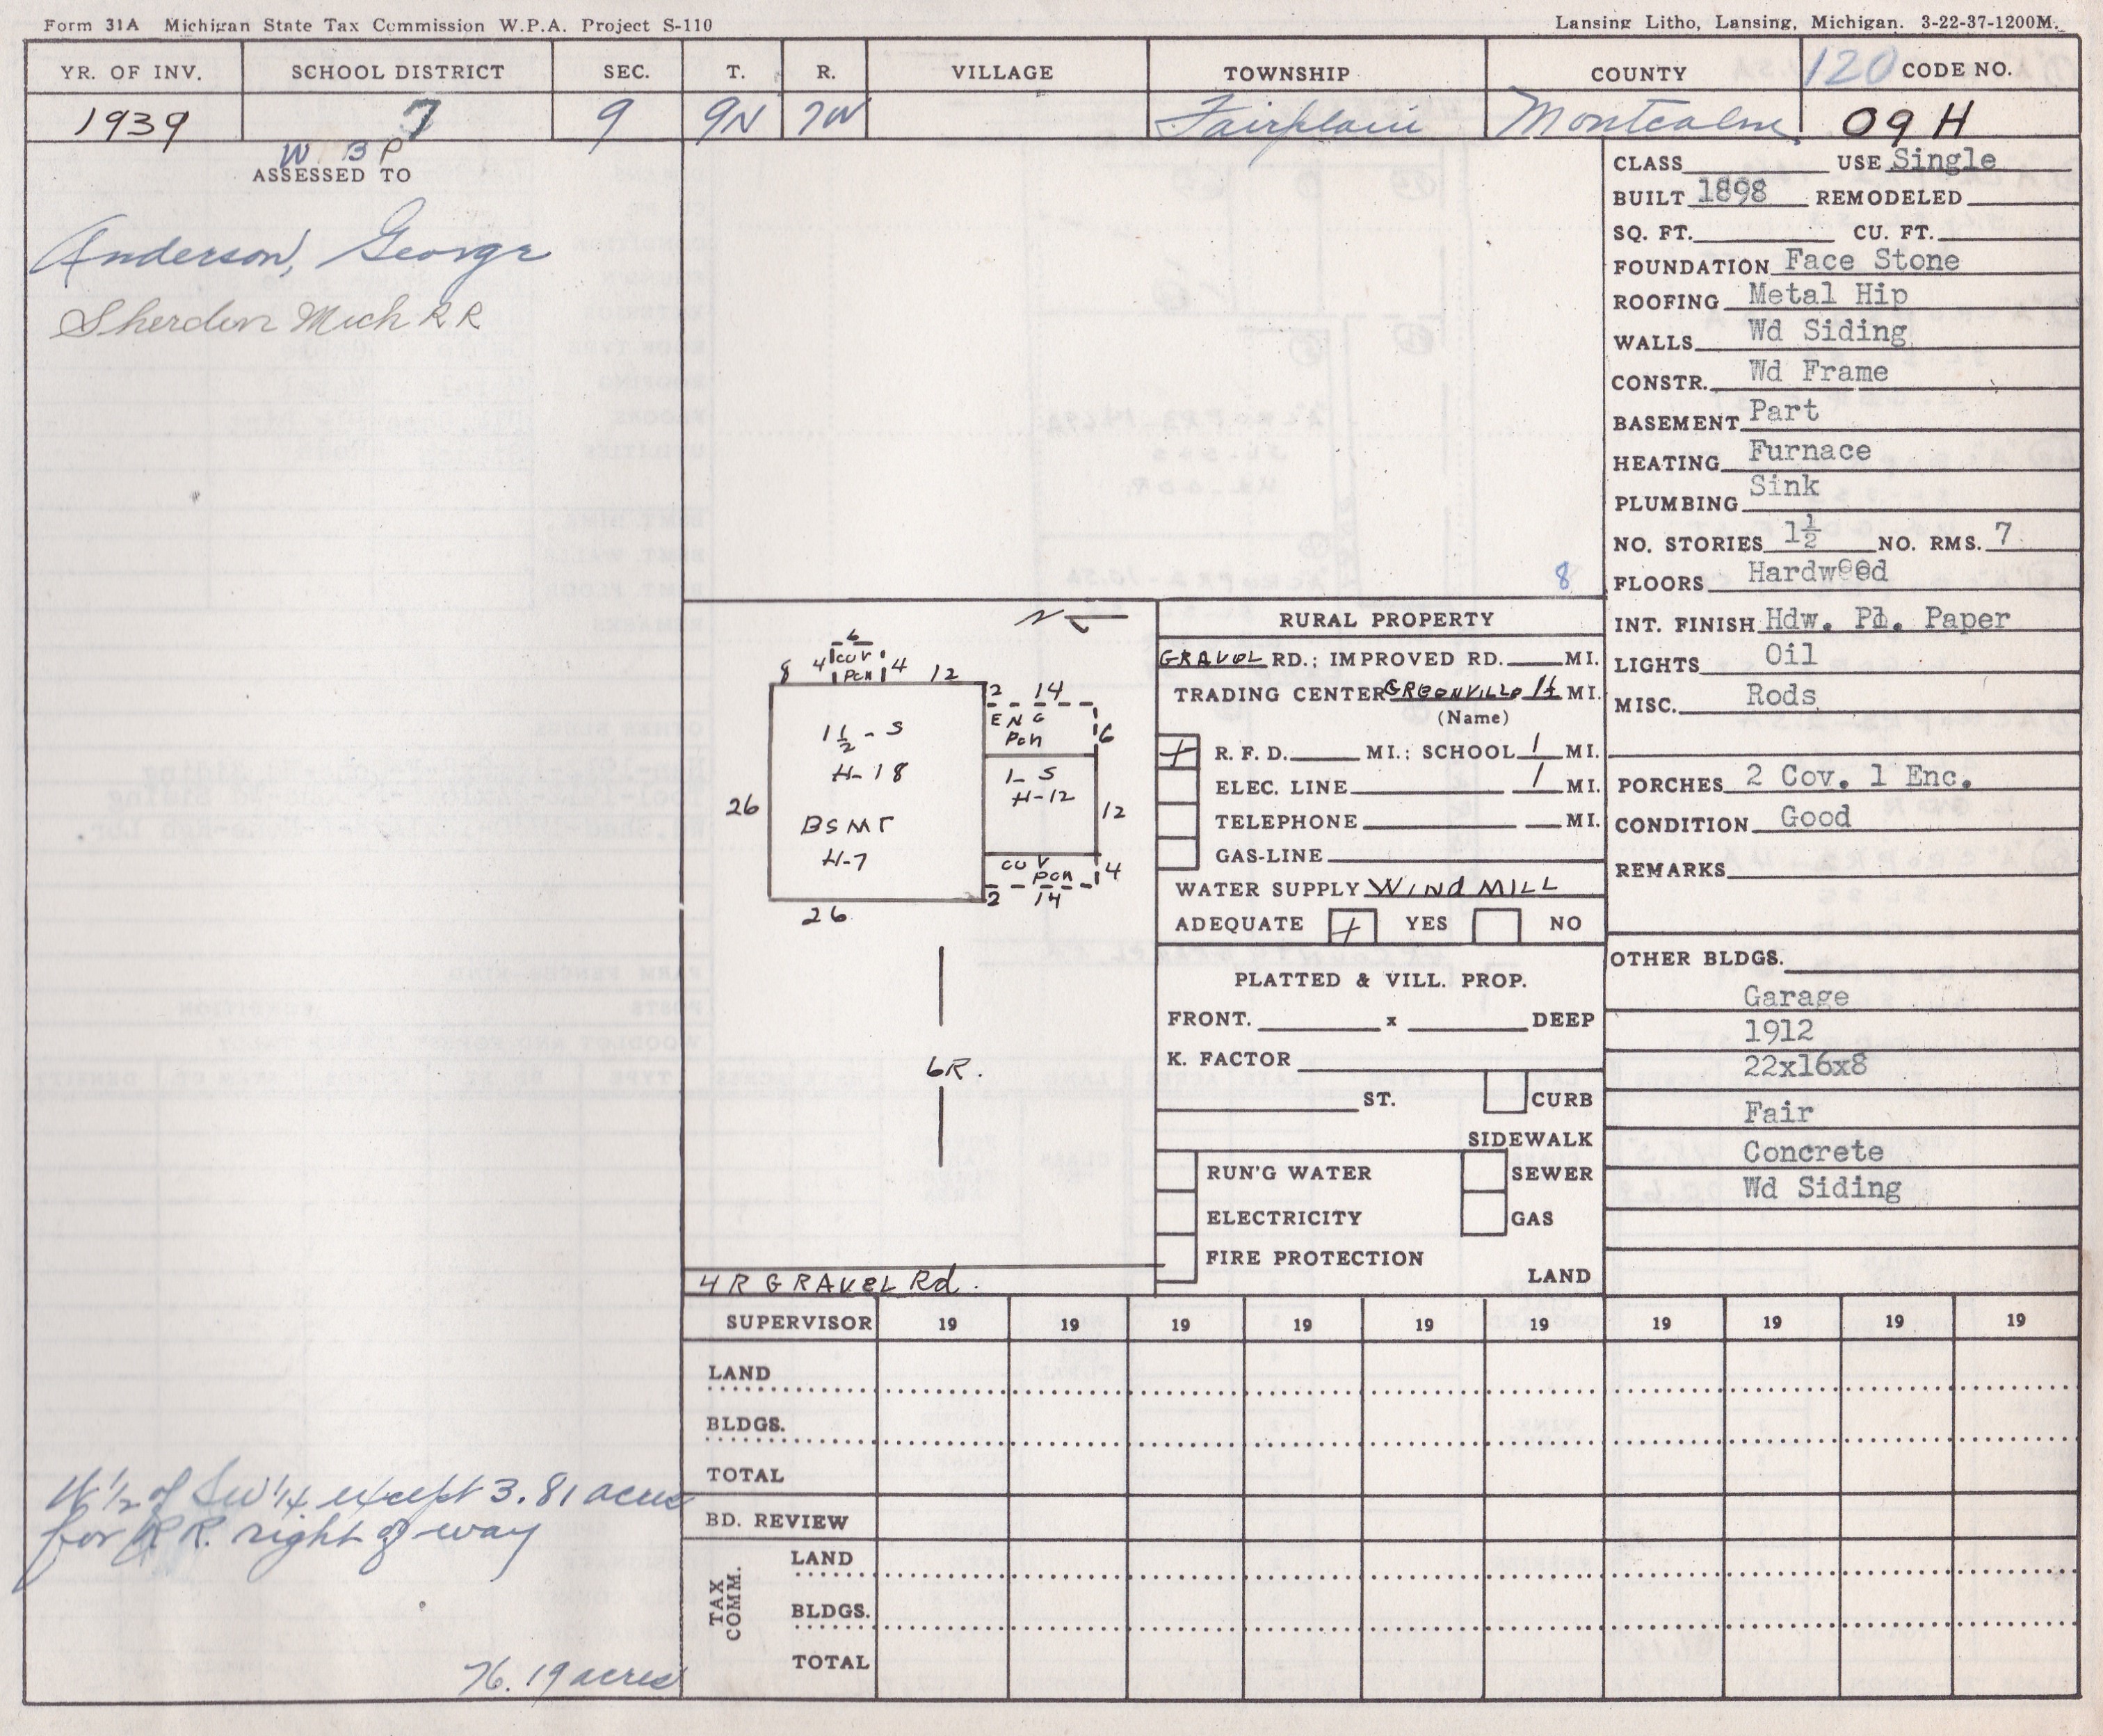 Form 31A Michigan State Tax Commission W.P.A. Project S-110
Lansing Litho, Lansing, Michigan. 3-22-37-1200M.
YR. OF INV. SCHOOL DISTRICT SEC. T. R. VILLAGE TOWNSHIP COUNTY 120 CODE NO.
1939 7 9 9N 7W Fairplain Montcalm 09 H
W B P
ASSESSED TO
Anderson, George
Sherden Mich R R
W 1/2 of Sw 1/4 except 3.81 acres
for R R. right of way
76.19 acres
8
N
6
8 4 COV 4 12
PCH
2 14
ENC
PCH
6
1 1/2 - S
H-18
1-S
H-12
26
12
BSMT
H-7
COV
PCH
4
2 14
26
6R.
4 R GRAVEL Rd.
RURAL PROPERTY
GRAVEL RD.; IMPROVED RD. MI.
TRADING CENTER GREENVILLE MI.
(Name)
+ R. F. D. MI.; SCHOOL 1 MI.
ELEC. LINE 1 MI.
TELEPHONE MI.
GAS-LINE
WATER SUPPLY WINDMILL
ADEQUATE + YES NO
PLATTED & VILL. PROP.
FRONT. x DEEP
K. FACTOR
ST. CURB
SIDEWALK
RUN'G WATER SEWER
ELECTRICITY GAS
FIRE PROTECTION
LAND
CLASS USE Single
BUILT 1898 REMODELED
SQ. FT. CU. FT.
FOUNDATION Face Stone
ROOFING Metal Hip
WALLS Wd Siding
CONSTR. Wd Frame
BASEMENT Part
HEATING Furnace
PLUMBING Sink
NO. STORIES 1½ NO. RMS. 7
FLOORS Hardwood
INT. FINISH Hdw. Pl. Paper
LIGHTS Oil
MISC. Rods
PORCHES 2 Cov. 1 Enc.
CONDITION Good
REMARKS
OTHER BLDGS.
Garage
1912
22x16x8
Fair
Concrete
Wd Siding
SUPERVISOR 19 19 19 19 19 19 19 19 19 19
LAND
BLDGS.
TOTAL
BD. REVIEW
TAX COMM.
LAND
BLDGS.
TOTAL